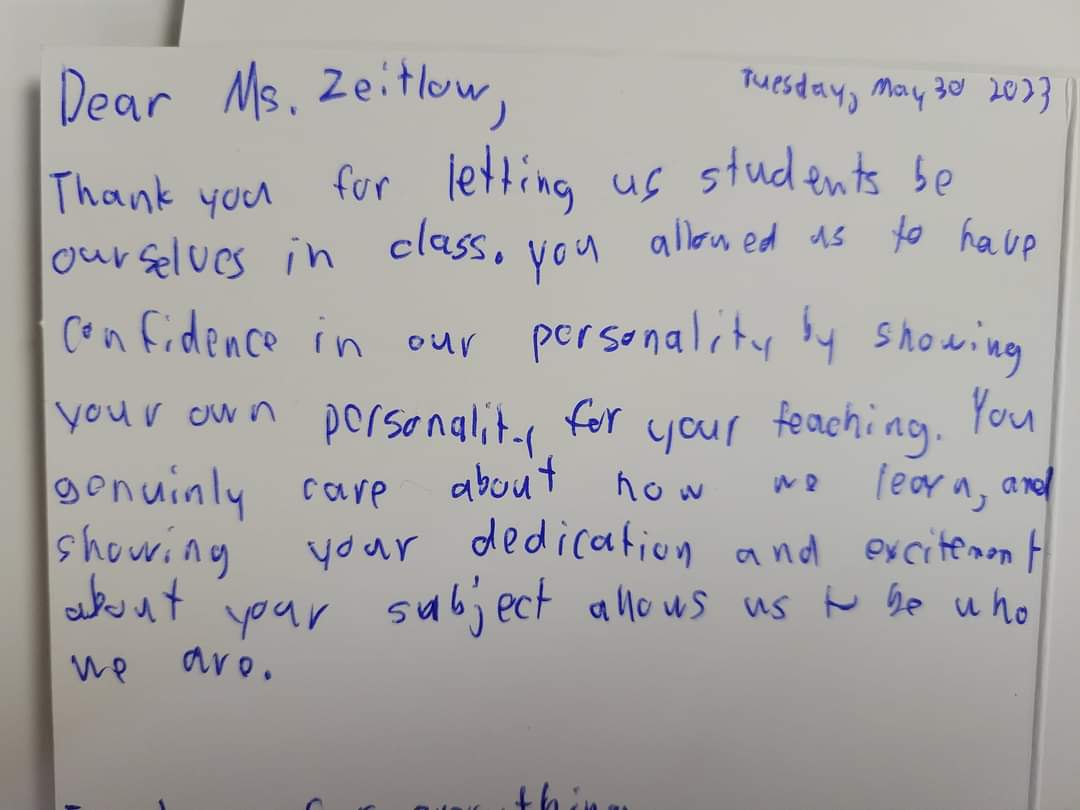 Dear Ms. Zeitlow,
Tuesday, May 30 2023
Thank you for letting us students be
ourselves in class. you allowed us to have
confidence in our personality by showing
your own personality for your teaching. You
genuinly care about how we learn, and
showing your dedication and excitement
about your subject allows us to be who
we are.